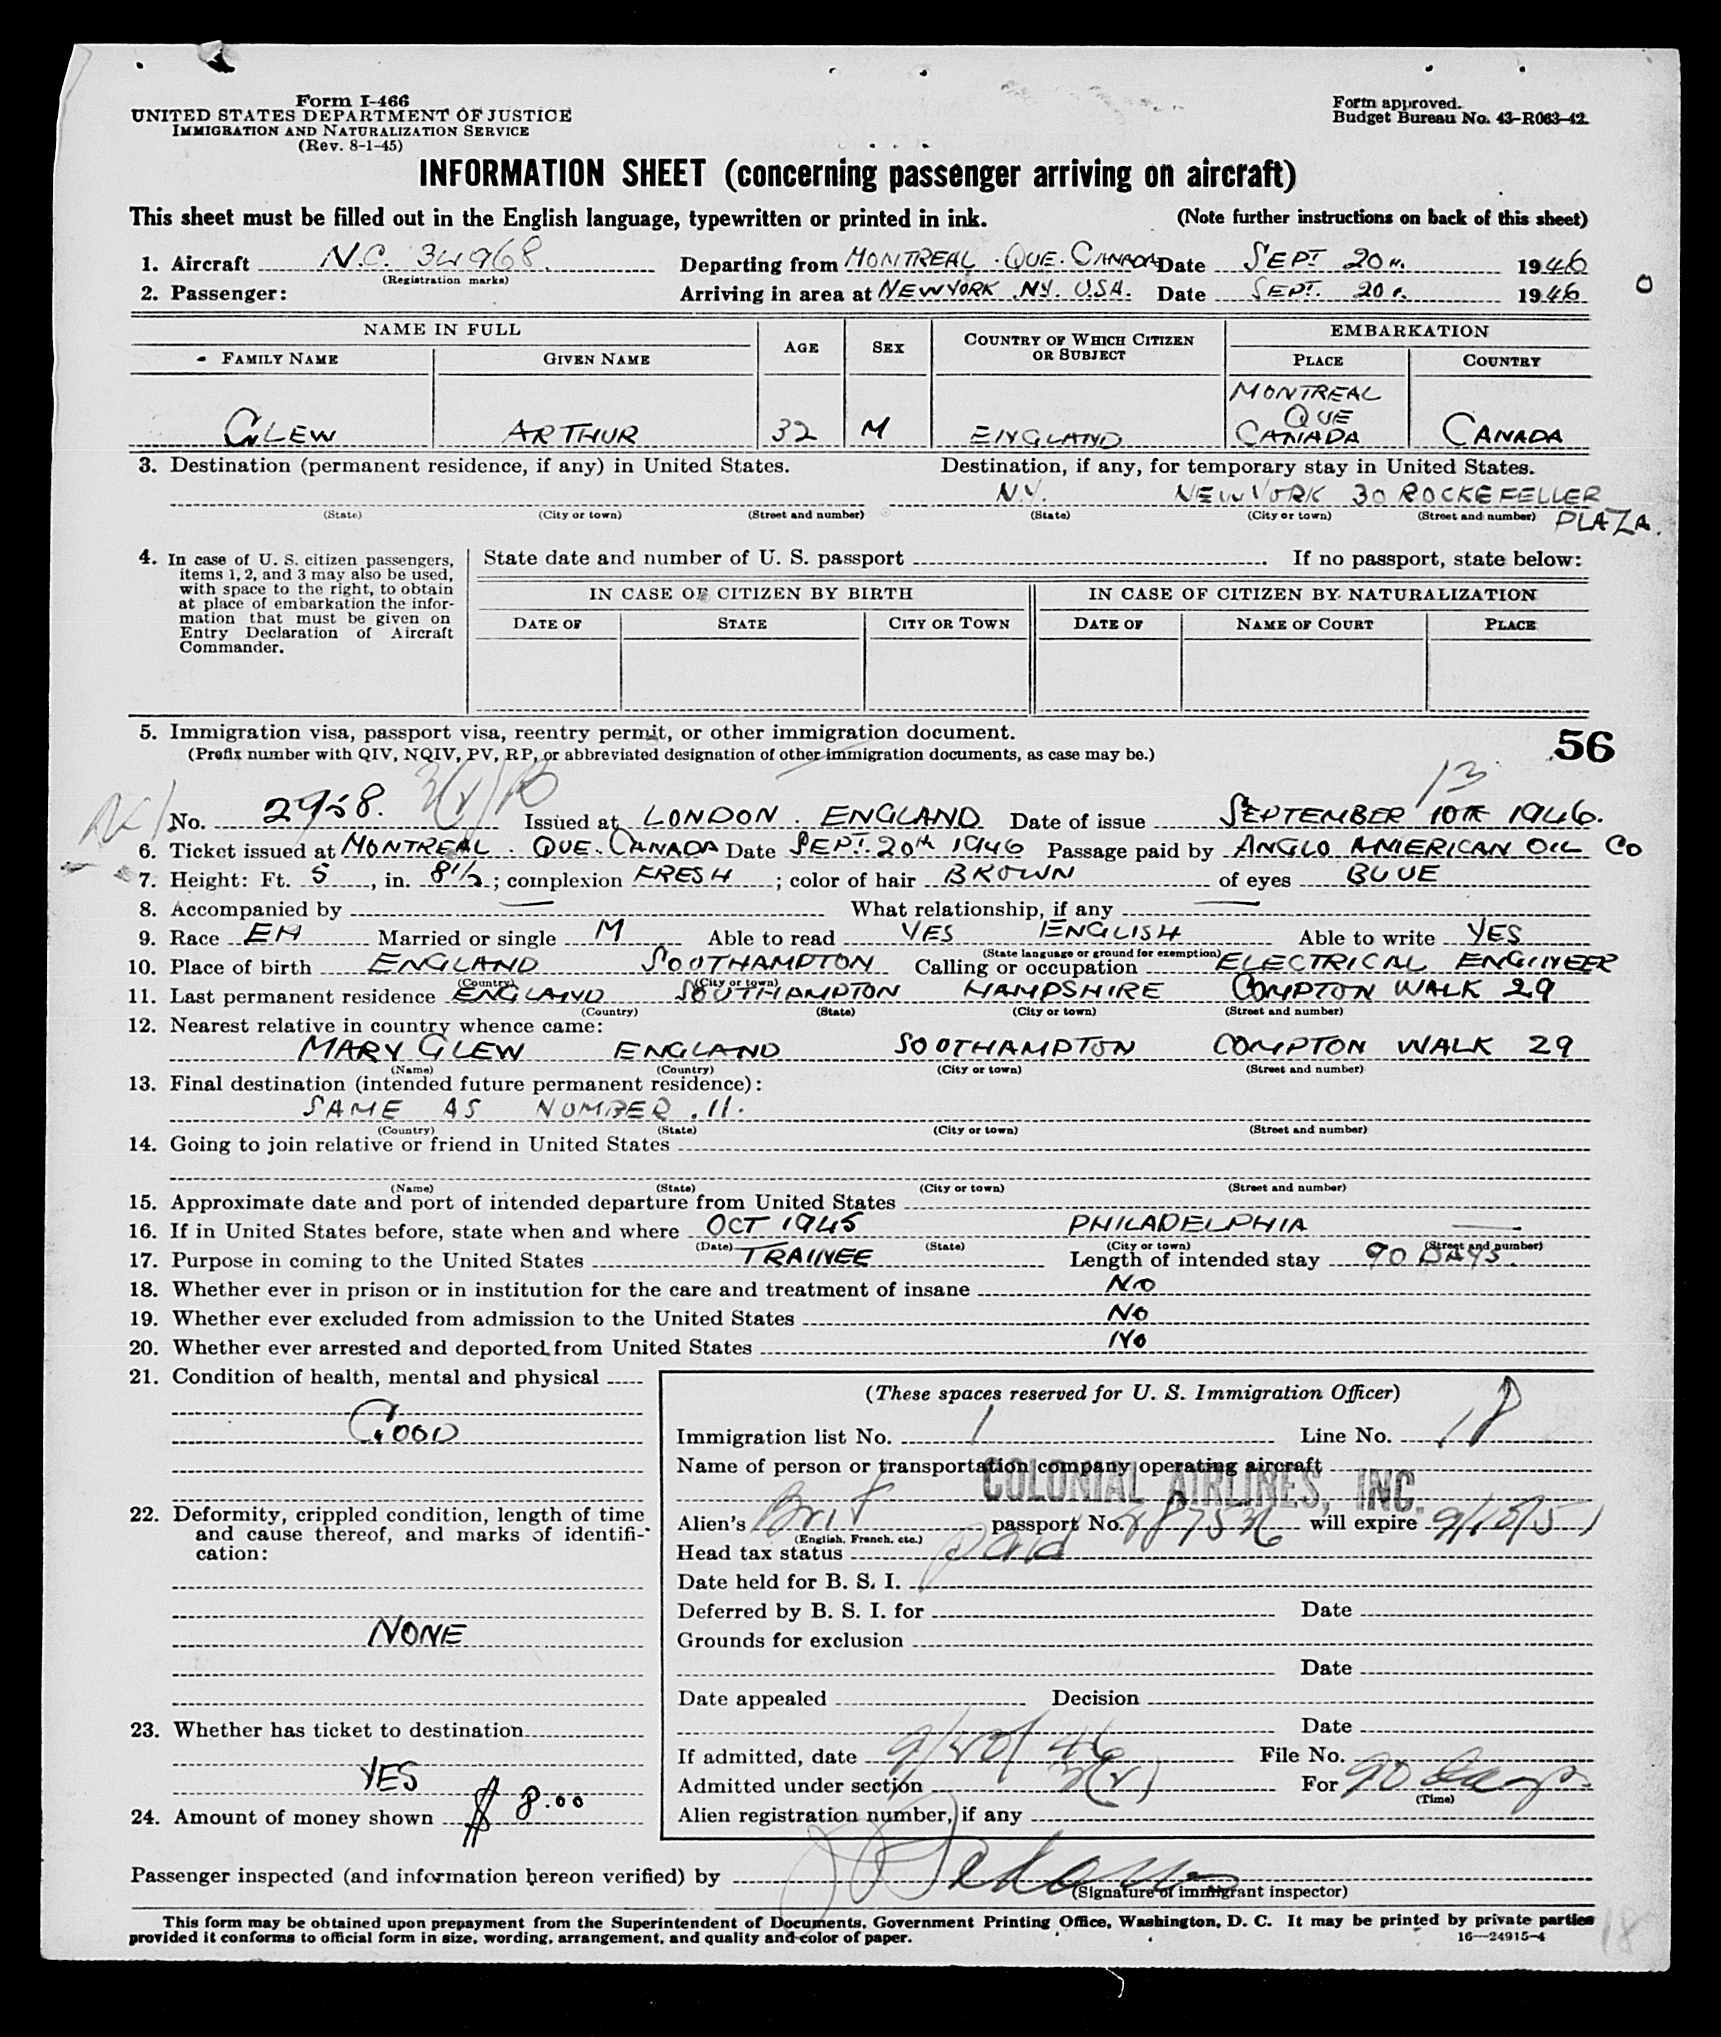 Form I-466
UNITED STATES DEPARTMENT OF JUSTICE
IMMIGRATION AND NATURALIZATION SERVICE
(Rev. 8-1-45)
Form approved.
Budget Bureau No. 43-R063-42.
INFORMATION SHEET (concerning passenger arriving on aircraft)
This sheet must be filled out in the English language, typewritten or printed in ink. (Note further instructions on back of this sheet)
1. Aircraft N.C. 34968. Departing from MONTREAL . QUE. CANADA Date SEPT 20th. 1946
(Registration marks)
2. Passenger: Arriving in area at NEW YORK .NY. U.S.A. Date SEPT. 20 1946
O
NAME IN FULL AGE SEX COUNTRY OF WHICH CITIZEN OR SUBJECT EMBARKATION
FAMILY NAME GIVEN NAME PLACE COUNTRY
GLEW ARTHUR 32 M ENGLAND MONTREAL QUE CANADA CANADA
3. Destination (permanent residence, if any) in United States. Destination, if any, for temporary stay in United States.
N.Y. NEW YORK 30 ROCKEFELLER PLAZA.
(State) (City or town) (Street and number) (State) (City or town) (Street and number)
4. In case of U. S. citizen passengers, items 1, 2, and 3 may also be used, with space to the right, to obtain at place of embarkation the information that must be given on Entry Declaration of Aircraft Commander.
State date and number of U. S. passport If no passport, state below:
IN CASE OF CITIZEN BY BIRTH IN CASE OF CITIZEN BY NATURALIZATION
DATE OF STATE CITY OR TOWN DATE OF NAME OF COURT PLACE
5. Immigration visa, passport visa, reentry permit, or other immigration document.
(Prefix number with QIV, NQIV, PV, RP, or abbreviated designation of other immigration documents, as case may be.)
56
3(2) 13
No. 2958. Issued at LONDON . ENGLAND Date of issue SEPTEMBER 10TH 1946.
6. Ticket issued at MONTREAL . QUE. CANADA Date SEPT. 20th 1946 Passage paid by ANGLO AMERICAN OIL CO
7. Height: Ft. 5, in. 8½; complexion FRESH; color of hair BROWN of eyes BLUE
8. Accompanied by — What relationship, if any —
9. Race EH Married or single M Able to read YES ENGLISH Able to write YES
(State language or ground for exemption)
10. Place of birth ENGLAND SOUTHAMPTON Calling or occupation ELECTRICAL ENGINEER
(Country) (City or town)
11. Last permanent residence ENGLAND SOUTHAMPTON HAMPSHIRE COMPTON WALK 29
(Country) (State) (City or town) (Street and number)
12. Nearest relative in country whence came:
MARY GLEW ENGLAND SOUTHAMPTON COMPTON WALK 29
(Name) (Country) (City or town) (Street and number)
13. Final destination (intended future permanent residence):
SAME AS NUMBER .11.
(Country) (State) (City or town) (Street and number)
14. Going to join relative or friend in United States
(Name) (State) (City or town) (Street and number)
15. Approximate date and port of intended departure from United States
16. If in United States before, state when and where OCT 1945 PHILADELPHIA —
(Date) (State) (City or town) (Street and number)
17. Purpose in coming to the United States TRAINEE Length of intended stay 90 DAYS.
18. Whether ever in prison or in institution for the care and treatment of insane NO
19. Whether ever excluded from admission to the United States NO
20. Whether ever arrested and deported from United States NO
21. Condition of health, mental and physical
GOOD
22. Deformity, crippled condition, length of time and cause thereof, and marks of identification:
NONE
23. Whether has ticket to destination
YES
24. Amount of money shown $ 8.00
(These spaces reserved for U. S. Immigration Officer)
Immigration list No. 1 Line No. 18
Name of person or transportation company operating aircraft
COLONIAL AIRLINES, INC.
Alien's Brit passport No. 287536 will expire 9/10/51
(English, French, etc.)
Head tax status paid
Date held for B. S. I.
Deferred by B. S. I. for Date
Grounds for exclusion
Date
Date appealed Decision
Date
If admitted, date 9/20/46 File No.
Admitted under section 3(2) For 90 days
(Time)
Alien registration number, if any
Passenger inspected (and information hereon verified) by
(Signature of immigrant inspector)
This form may be obtained upon prepayment from the Superintendent of Documents, Government Printing Office, Washington, D. C. It may be printed by private parties
provided it conforms to official form in size, wording, arrangement, and quality and color of paper. 16—24915-4
18